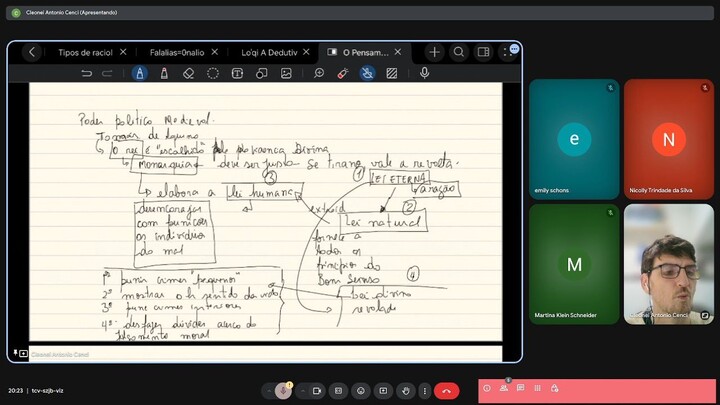 Cleonei Antonio Cenci (Apresentando)
Tipos de raciol
Falalias=0nalio
Lo'qi A Dedutiv
O Pensam...
Poder político Medieval.
Tomás de Aquino
O rei é "escolhido" pela providência Divina
Monarquia deve ser justo se tirano vale a revolta.
① LEI ETERNA
③ a razão
elabora a lei humana
extraid lei natural ②
desencorajar
com punições
os indivíduos
do mal
fornece a
todos os
princípios do
Bom Senso
④
1º punir crimes "pequenos"
2º mostrar o sentido da vida
3º pune crimes interiores
4º desfazer dúvidas acerca do
julgamento moral
Lei divina
revelada
Cleonei Antonio Cenci
e
emily schons
N
Nicolly Trindade da Silva
M
Martina Klein Schneider
Cleonei Antonio Cenci
20:23 | tcv-szjb-viz